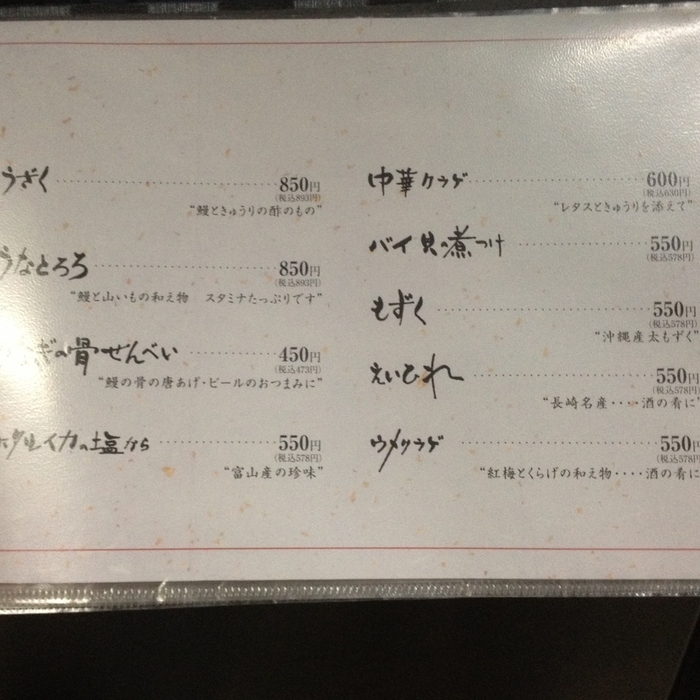 うざく 850円
(税込893円)
“鰻ときゅうりの酢のもの”
うなとろろ 850円
(税込893円)
“鰻と山いもの和え物 スタミナたっぷりです”
ぎの骨せんべい 450円
(税込473円)
“鰻の骨の唐あげ・ビールのおつまみに”
ホタルイカの塩から 550円
(税込578円)
“富山産の珍味”
中華クラゲ 600円
(税込630円)
“レタスときゅうりを添えて”
バイ貝の煮つけ 550円
(税込578円)
もずく 550円
(税込578円)
“沖縄産太もずく”
えいひれ 550円
(税込578円)
“長崎名産‥‥酒の肴に”
ウメクラゲ 550円
(税込578円)
“紅梅とくらげの和え物‥‥酒の肴に